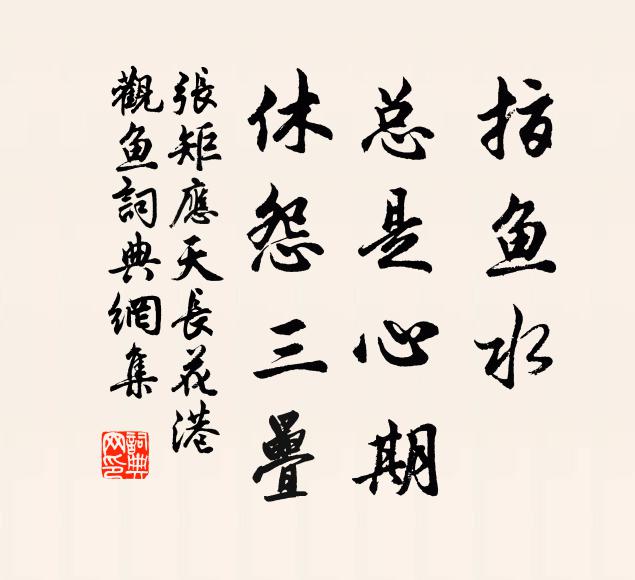 指鱼水
总是心期
休怨三疊
張矩應天長花港
觀鱼詞典網集
詞典网印